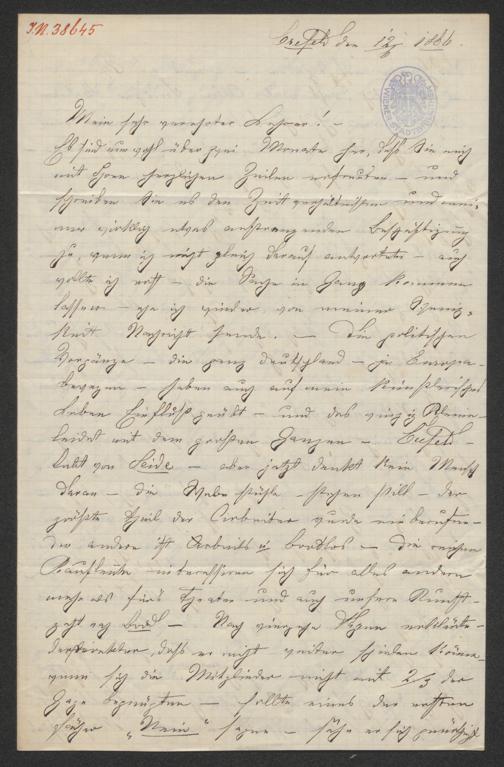 I.N. 38645
Crefeld den 12/ 1866.
Mein sehr verehrter Lehrer! –
Es sind nun wohl über zwei Monate her, daß Sie mich
mit Ihren herzlichen Zeilen erfreuten – und
schreiben Sie es den Zeitverhältnissen und mei-
ner wirklich etwas anstrengenden Beschäftigung
zu, wenn ich nicht gleich darauf antwortete – auch
wollte ich erst – die Sache in Gang kommen
lassen – ehe ich wieder von meiner Wenig-
keit Nachricht sende. – Die politischen
Vorgänge – die ganz Deutschland – ja Europa –
bewegen – haben auch auf mein künstlerisches
Leben Einfluß geübt – und das winzig Kleine
leidet mit dem großen Ganzen – Crefeld –
lebt von Seide – aber jetzt denkt kein Mensch
daran – die Webestühle – stehen still – der
größte Theil der Arbeiter wurde einberufen –
der andere ist Arbeits u brodlos – die reichen
Kaufleute interessiren sich für alles andere
mehr als fürs Theater und auch unsere Kunst
geht nach Brod – Nach vierzehn Tagen erklärte
der Direktor, daß er nicht weiter spielen könne,
wenn sich die Mitglieder nicht mit 2/3 der
Gage begnügten – sollte eines der ersten
Fächer „Nein" sagen – sähe er sich genöthigt